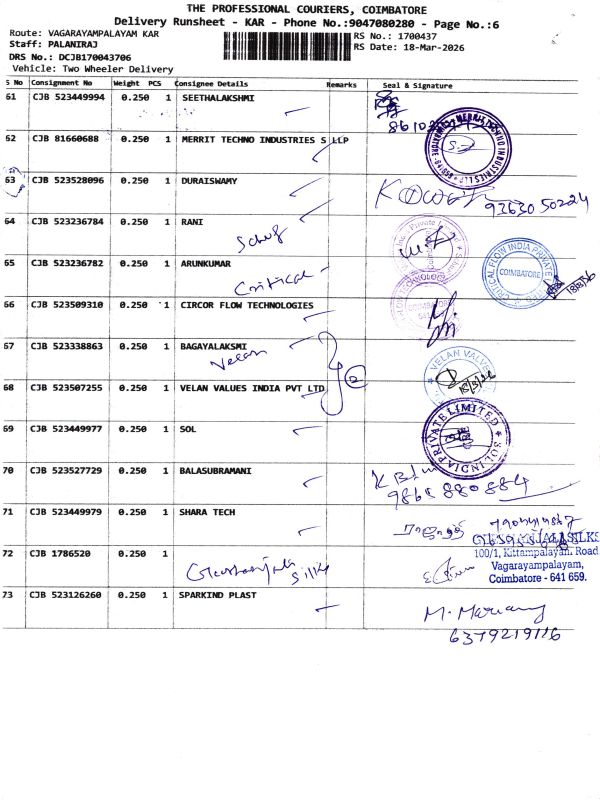 THE PROFESSIONAL COURIERS, COIMBATORE
Delivery Runsheet - KAR - Phone No.:9047080280 - Page No.:6
Route: VAGARAYAMPALAYAM KAR
RS No.: 1700437
Staff: PALANIRAJ
RS Date: 18-Mar-2026
DRS No.: DCJB170043706
Vehicle: Two Wheeler Delivery
S No Consignment No Weight PCS Consignee Details Remarks Seal & Signature
61 CJB 523449994 0.250 1 SEETHALAKSHMI
62 CJB 81660688 0.250 1 MERRIT TECHNO INDUSTRIES S LLP
63 CJB 523528096 0.250 1 DURAISWAMY
93630 50224
64 CJB 523236784 0.250 1 RANI
65 CJB 523236782 0.250 1 ARUNKUMAR
Critical
CRITICAL FLOW INDIA PRIVATE
COIMBATORE
66 CJB 523509310 0.250 1 CIRCOR FLOW TECHNOLOGIES
67 CJB 523338863 0.250 1 BAGAYALAKSMI
Velan
VELAN VALV
18/3/26
68 CJB 523507255 0.250 1 VELAN VALUES INDIA PVT LTD
2
69 CJB 523449977 0.250 1 SOL
SOL INDIA PRIVATE LIMITED
70 CJB 523527729 0.250 1 BALASUBRAMANI
9868 880884
71 CJB 523449979 0.250 1 SHARA TECH
72 CJB 1786520 0.250 1
Silks
100/1, Kittampalayam Road
Vagarayampalayam,
Coimbatore - 641 659.
73 CJB 523126260 0.250 1 SPARKIND PLAST
6379219116